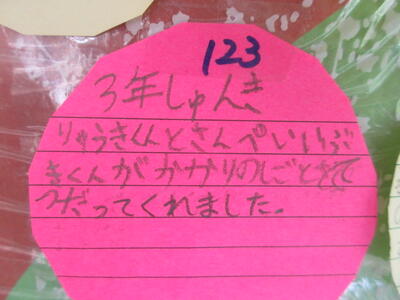 123
3年しゅんき
りゅうきくんとさんぺいいぶ
きくんがかかりのしごとをて
つだってくれました。